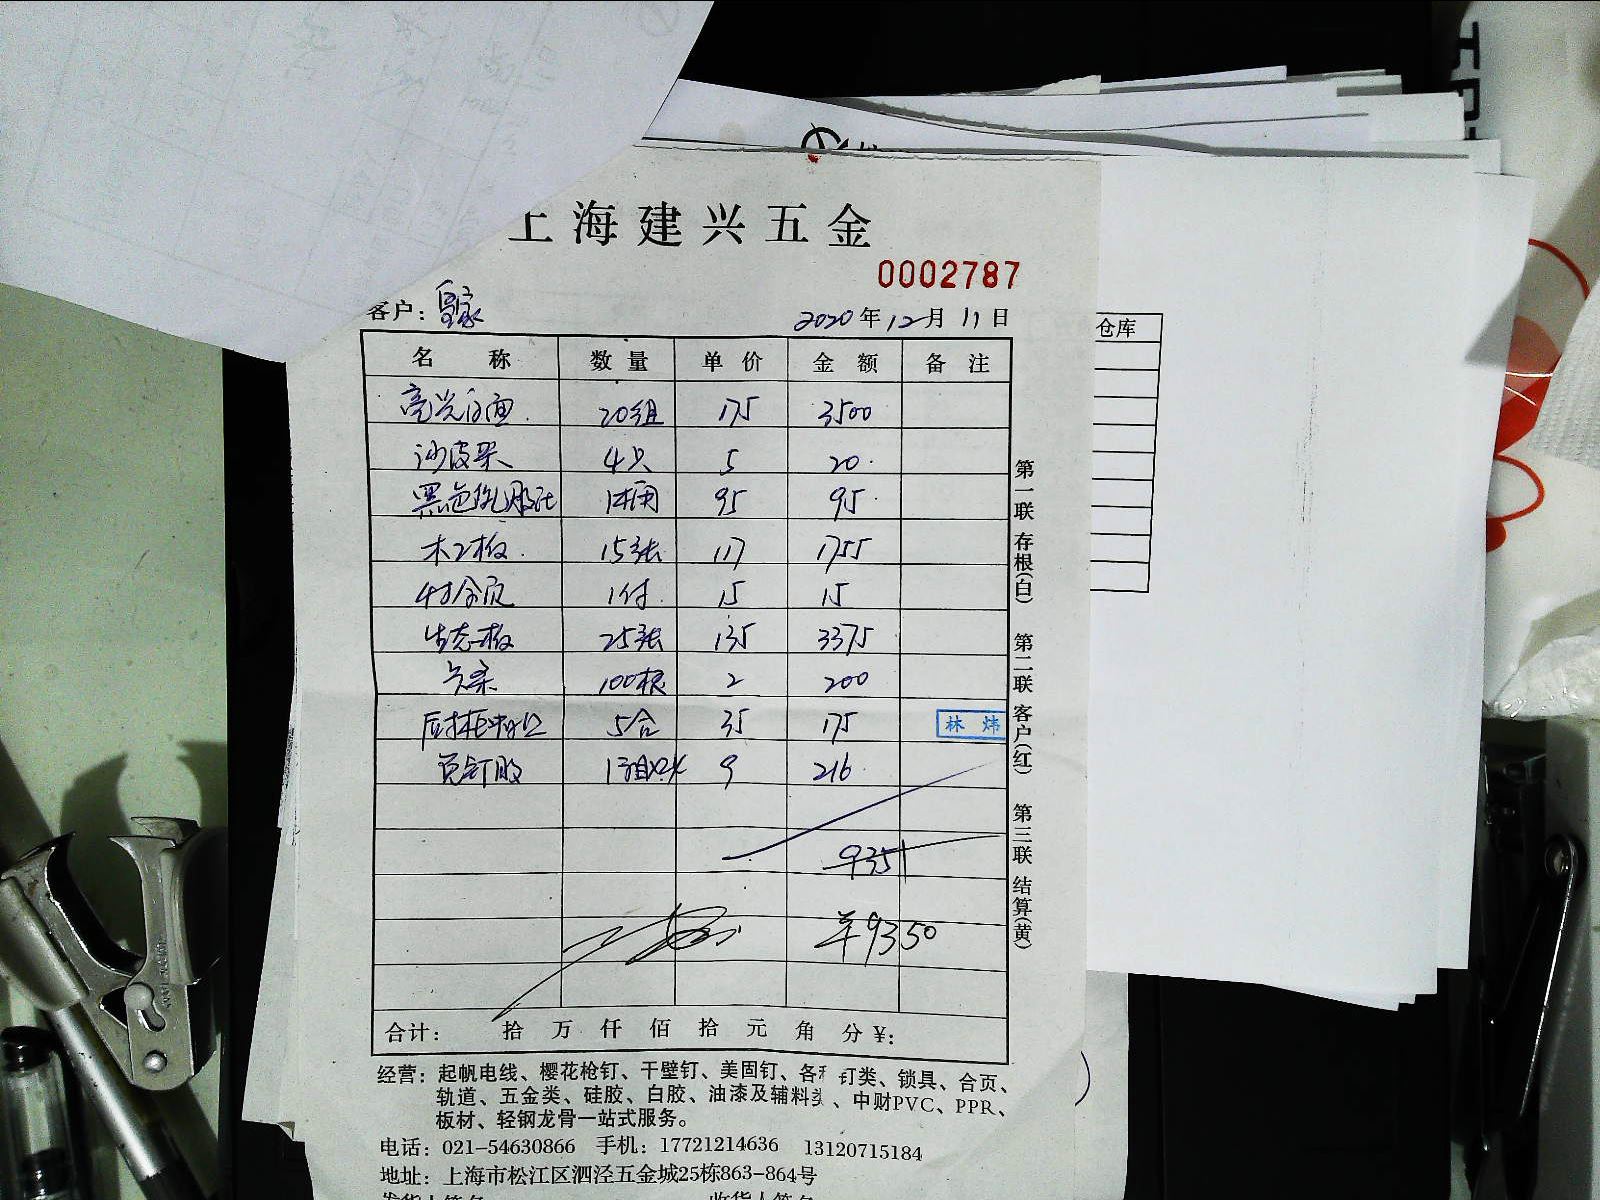 上海建兴五金
0002787
客户：皇家 2020年12月11日
仓库
名称 数量 单价 金额 备注
亮光白面 20组 175 3500
沙皮架 4只 5 20
黑色乳胶漆 1桶 95 95
木工板 15张 117 1755
合页 1付 15 15
生态板 25张 135 3375
100根 2 200
5合 35 175
免钉胶 1箱x24 9 216
林炜
9351
羊9350
合计： 拾 万 仟 佰 拾 元 角 分 ¥：
第一联 存根(白) 第二联 客户(红) 第三联 结算(黄)
经营：起帆电线、樱花枪钉、干壁钉、美固钉、各 钉类、锁具、合页、
轨道、五金类、硅胶、白胶、油漆及辅料类、中财PVC、PPR、
板材、轻钢龙骨一站式服务。
电话：021-54630866 手机：17721214636 13120715184
地址：上海市松江区泗泾五金城25栋863-864号